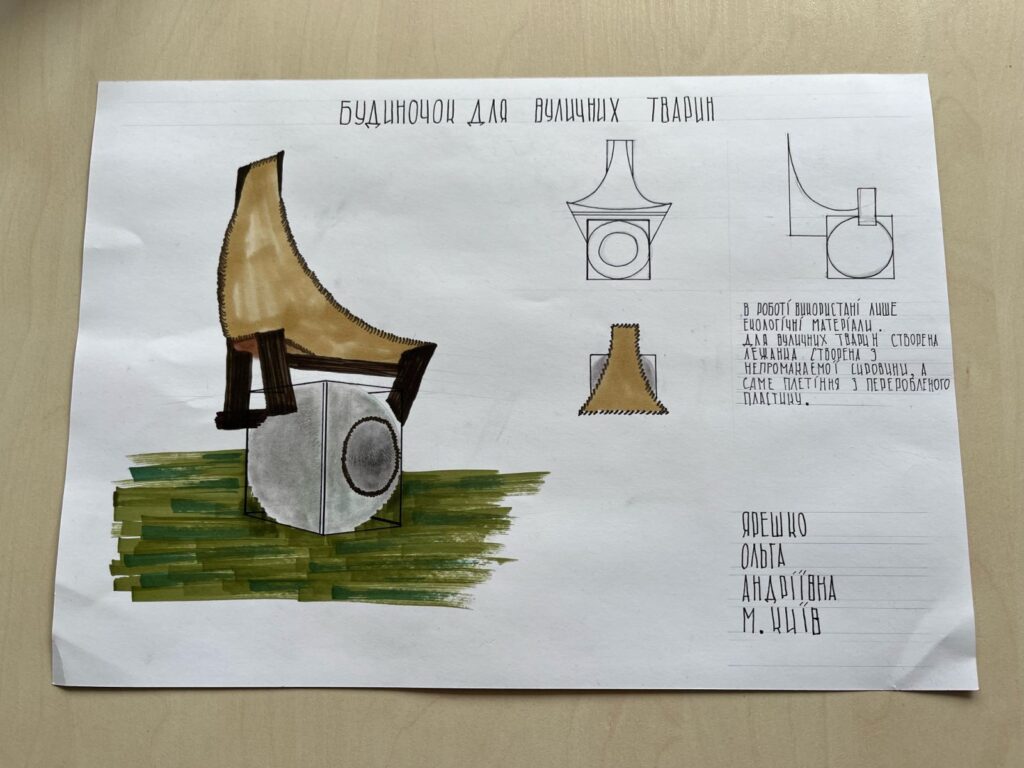 БУДИНОЧОК ДЛЯ ВУЛИЧНИХ ТВАРИН
В РОБОТІ ВИКОРИСТАНІ ЛИШЕ
ЕКОЛОГІЧНІ МАТЕРІАЛИ.
ДЛЯ ВУЛИЧНИХ ТВАРИН СТВОРЕНА
ЛЕЖАНКА СТВОРЕНА З
НЕПРОМАКАЕМОЇ СИРОВИНИ, А
САМЕ ПЛЕТІННЯ З ПЕРЕРОБЛЕНОГО
ПЛАСТИКУ.
ЯРЕШКО
ОЛЬГА
АНДРІЇВНА
М. КИЇВ